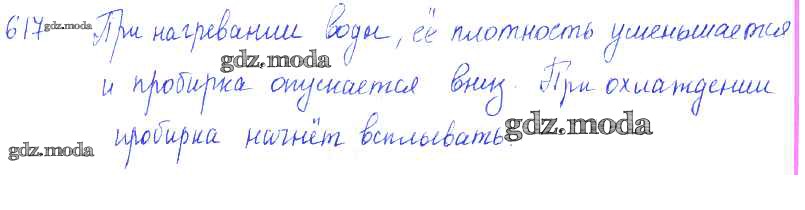 617 gdz.moda При нагревании воды, её плотность уменьшается
gdz.moda
и пробирка опускается вниз. При охлаждении
gdz.moda пробирка начнёт всплывать. gdz.moda